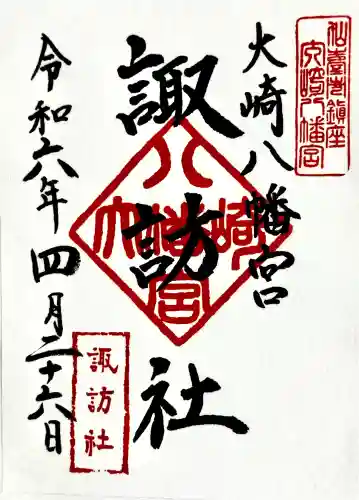 仙臺鎮座
大崎八幡宮
大崎八幡宮
諏訪社
大崎八幡宮
諏訪社
令和六年四月二十六日